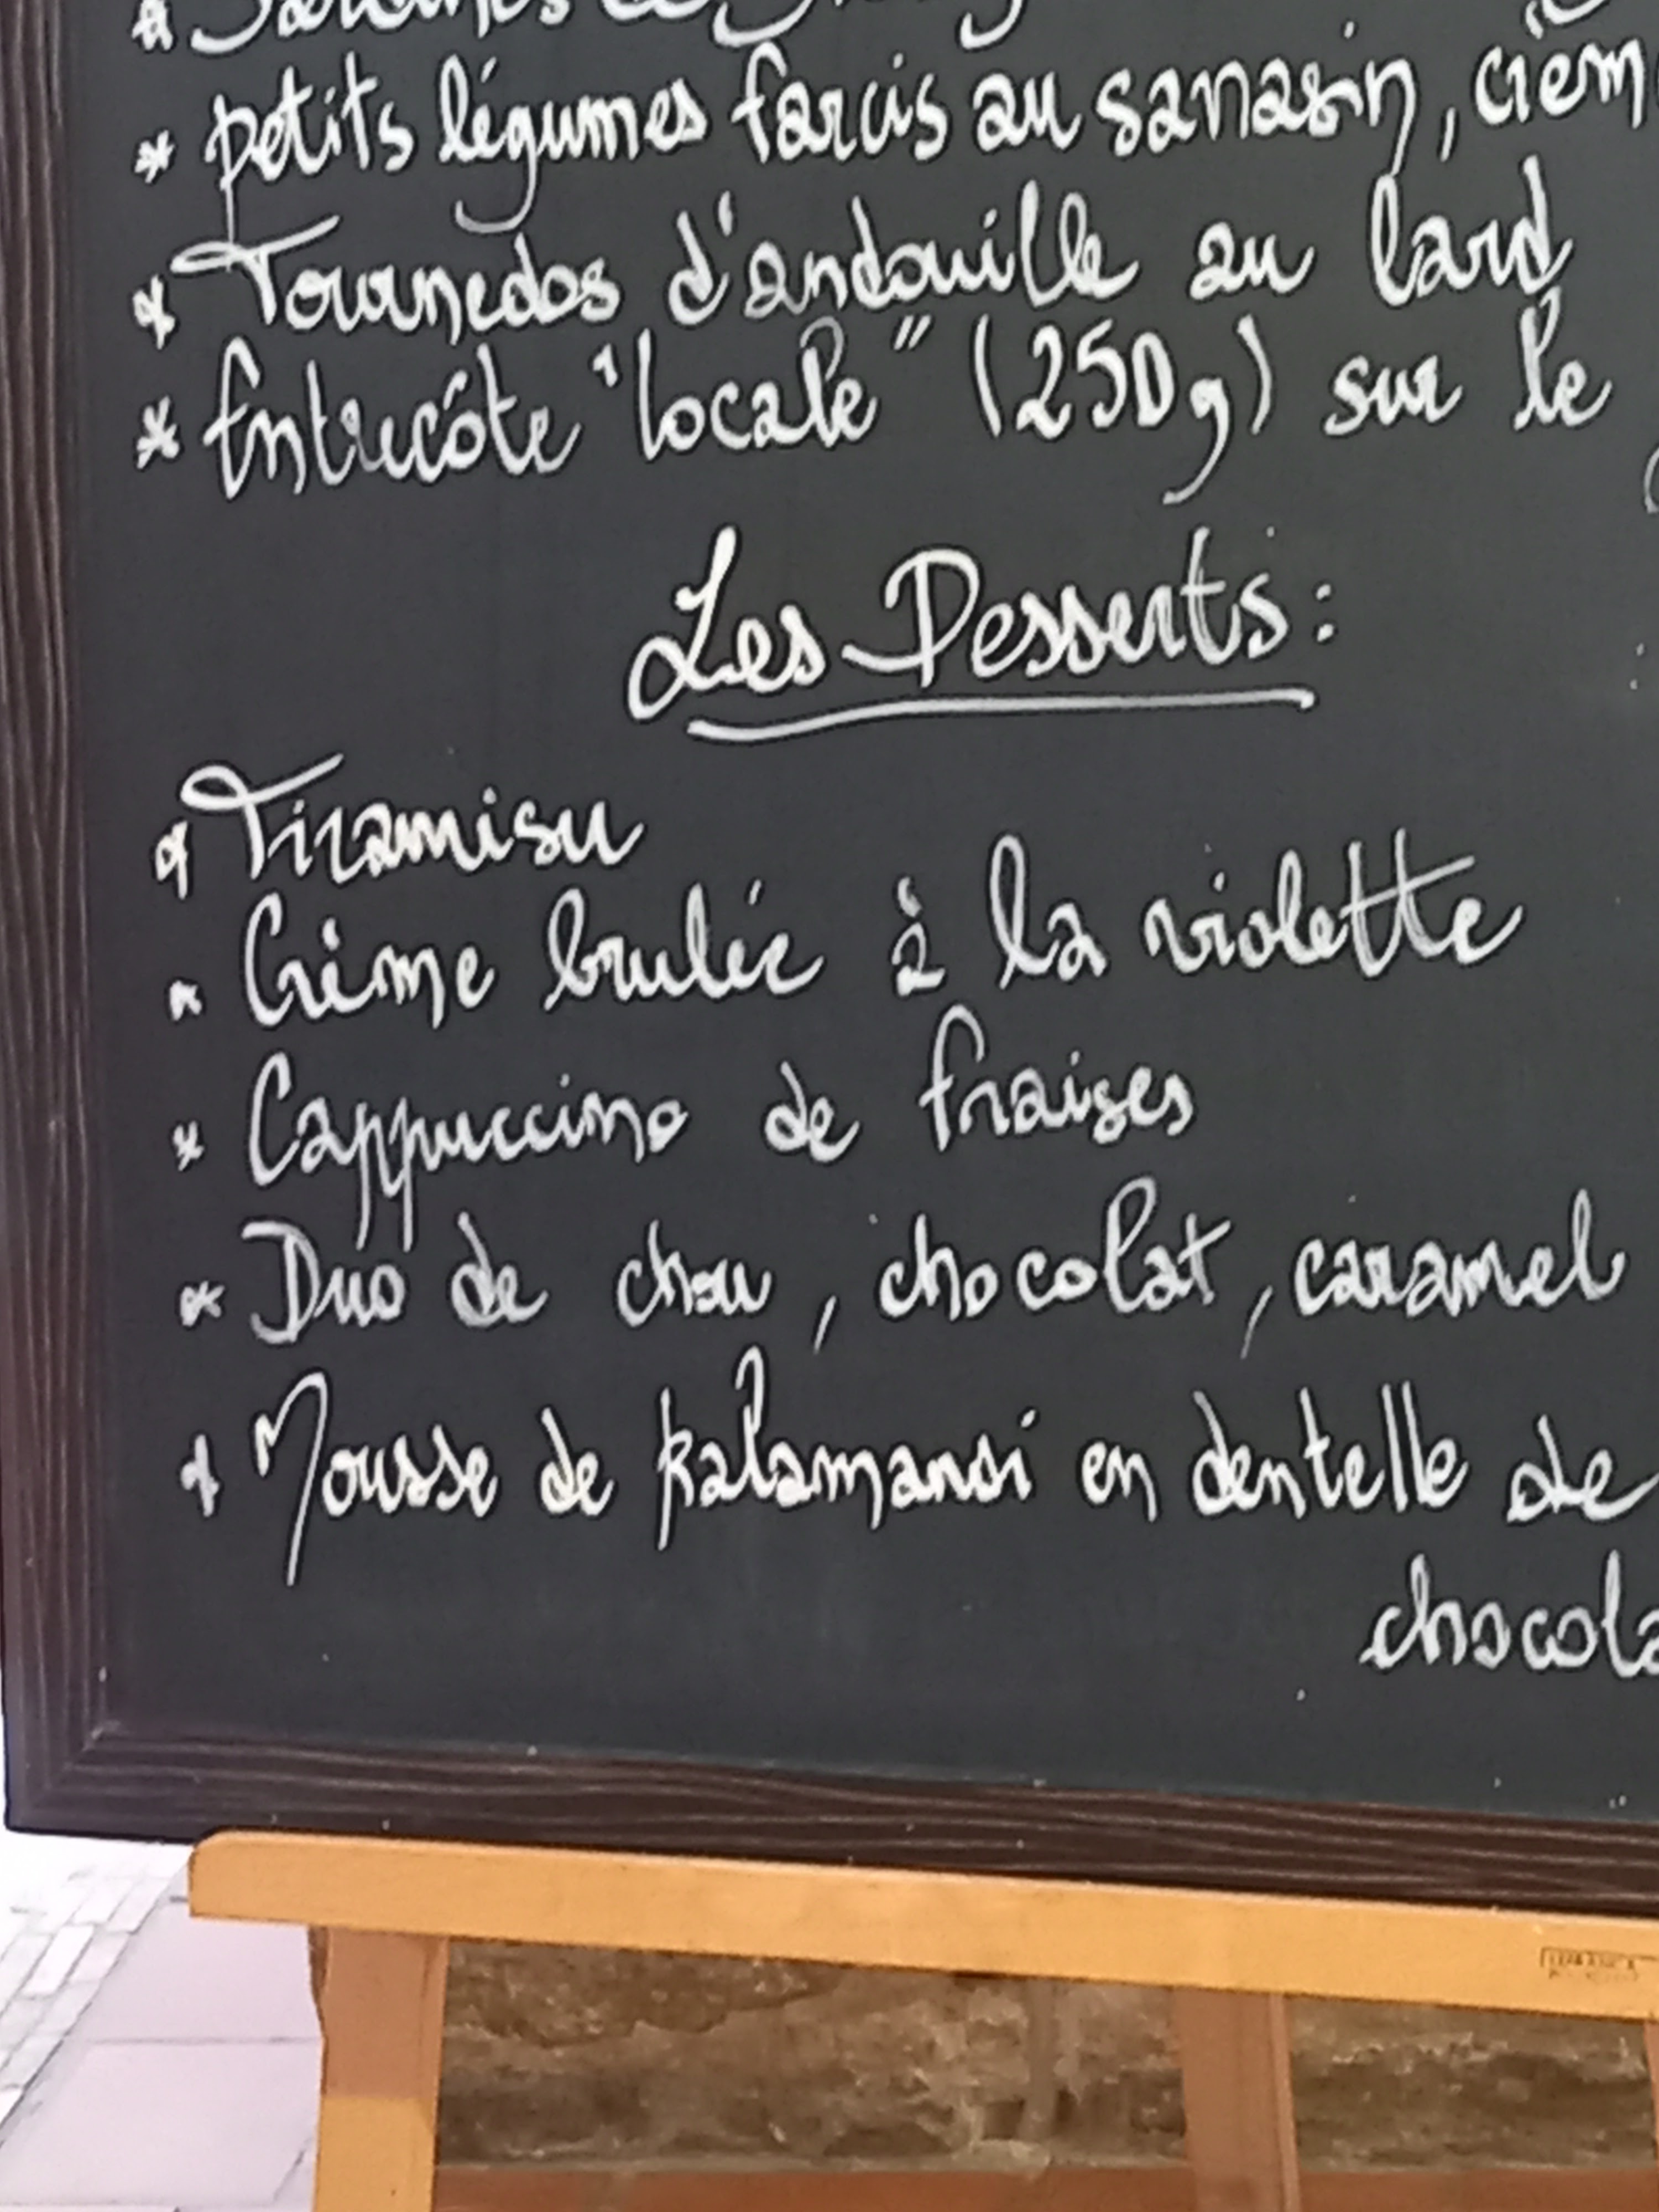 * Sardines
* petits légumes farcis au sarrasin, crèm
* Tournedos d'andouille au lard
* Entrecôte "locale" (250g) sur le
Les Desserts :
* Tiramisu
* Crème brulée à la violette
* Cappuccino de fraises
* Duo de chou, chocolat, caramel
* Mousse de kalamansi en dentelle de
chocola